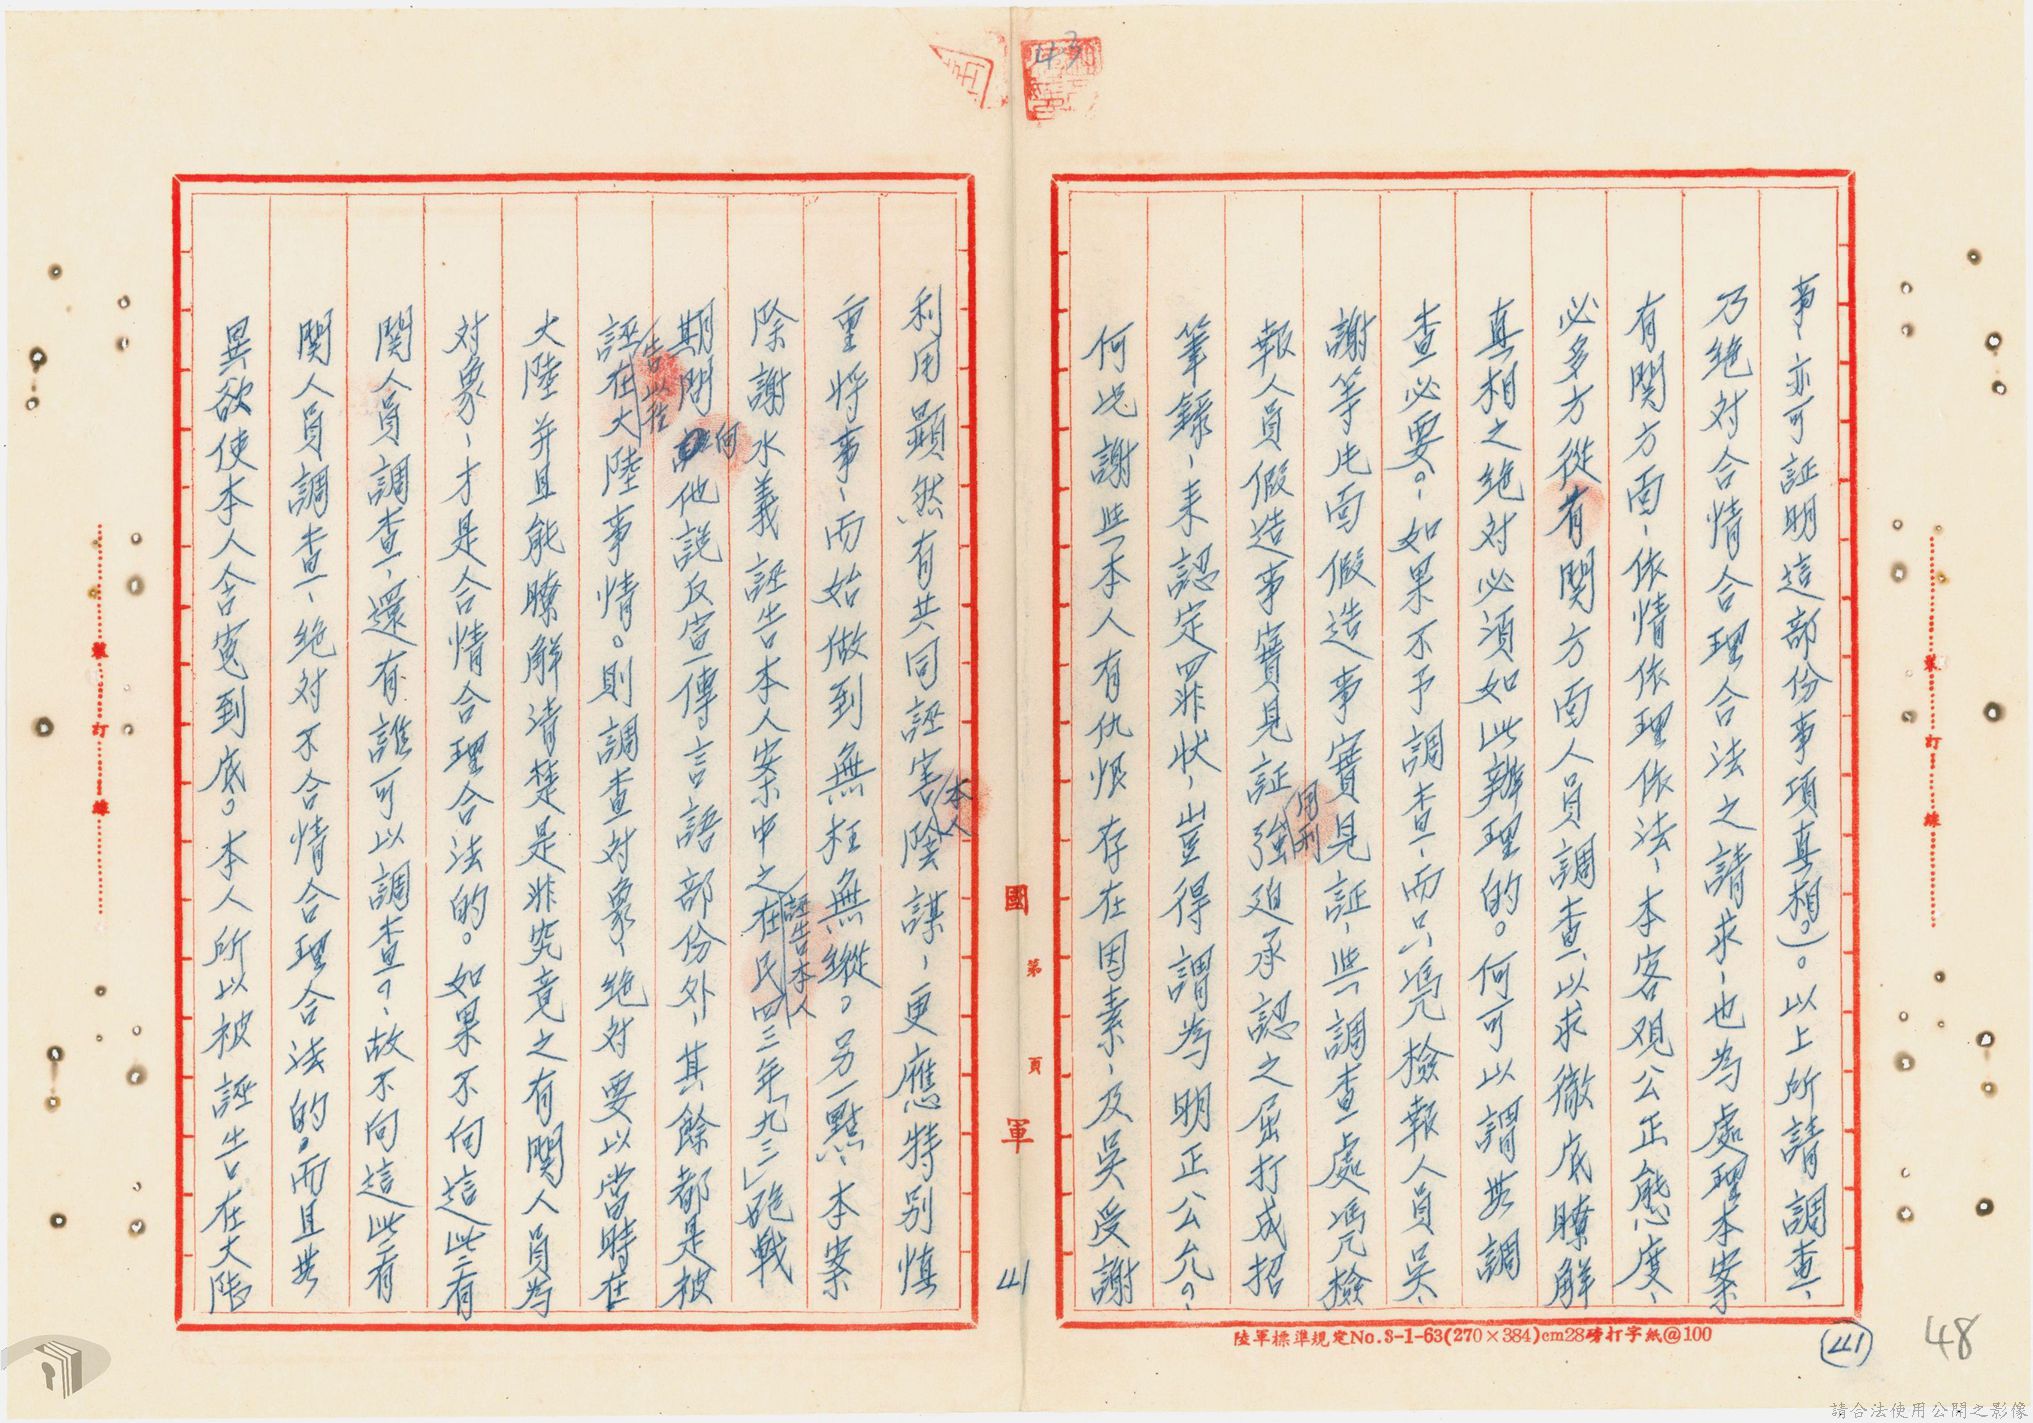 43
事、亦可証明這部份事項真相。)。以上所請調查、
乃絕对合情合理合法之請求、也為處理本案
有関方面、依情依理依法、本客观公正態度、
必多方從有関方面人員調查、以求徹底瞭解
真相之絕对必須如此辦理的。何可以謂無調
查必要。、如果不予調查、而只憑檢報人員吳、
謝等片面假造事實見証、與調查處憑檢
報人員假造事實見証用刑強迫承認之屈打成招
筆錄、来認定罪狀、豈得謂為明正公允。、
何况謝與本人有仇恨存在因素、及吳受謝
利用顯然有共同誣害本人陰謀、更應特别慎
重将事、而始做到無枉無縱。另一點、本案
除謝水義誣告本人案中之誣告本人在民四三年「九三」砲戰
期間向他說反宣傳言語部份外、其餘都是被
誣告以往在大陸事情。則調查对象、絕对要以當時在
大陸并且能瞭解清楚是非究竟之有関人員為
对象、才是合情合理合法的。如果不向這些有
関人員調查、還有誰可以調查。、故不向這些有
関人員調查、絕对不合情合理合法的。而且無
異欲使本人含寃到底。本人所以被誣告在大陸
國軍
第 頁
41
裝訂線
裝訂線
陸軍標準規定No.3-1-63(270×384)cm28磅打字紙@100
41
48
請合法使用公開之影像